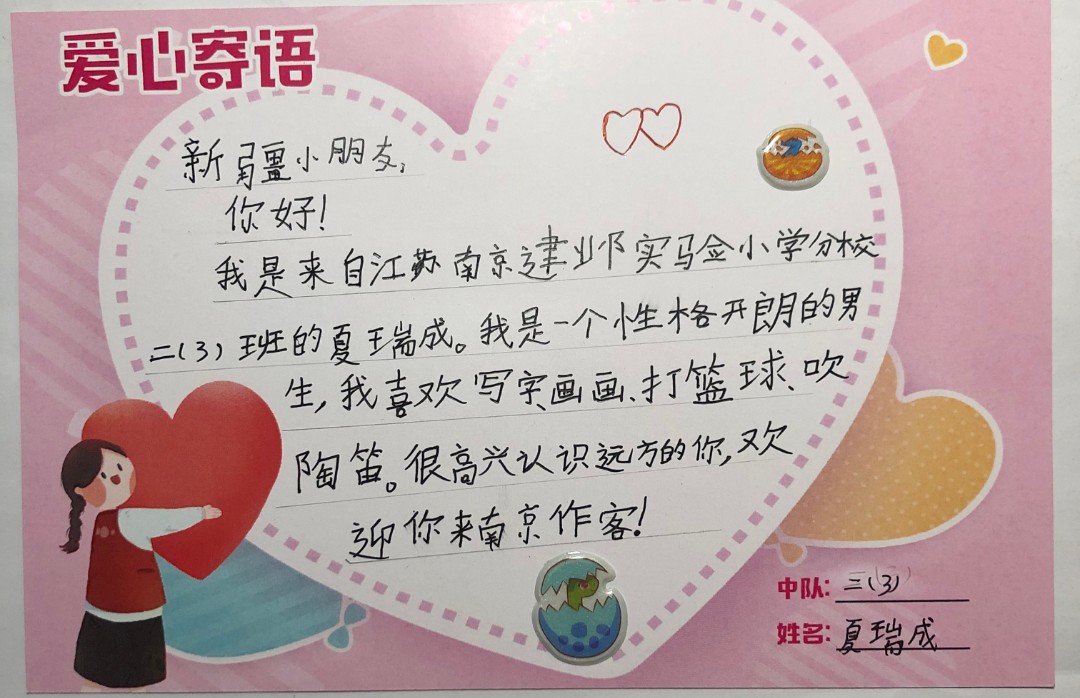 爱心寄语
新疆小朋友:
你好!
我是来自江苏南京建邺实验小学分校
二(3)班的夏瑞成。我是一个性格开朗的男
生,我喜欢写字、画画、打篮球、吹
陶笛。很高兴认识远方的你,欢
迎你来南京作客!
中队: 三(3)
姓名: 夏瑞成